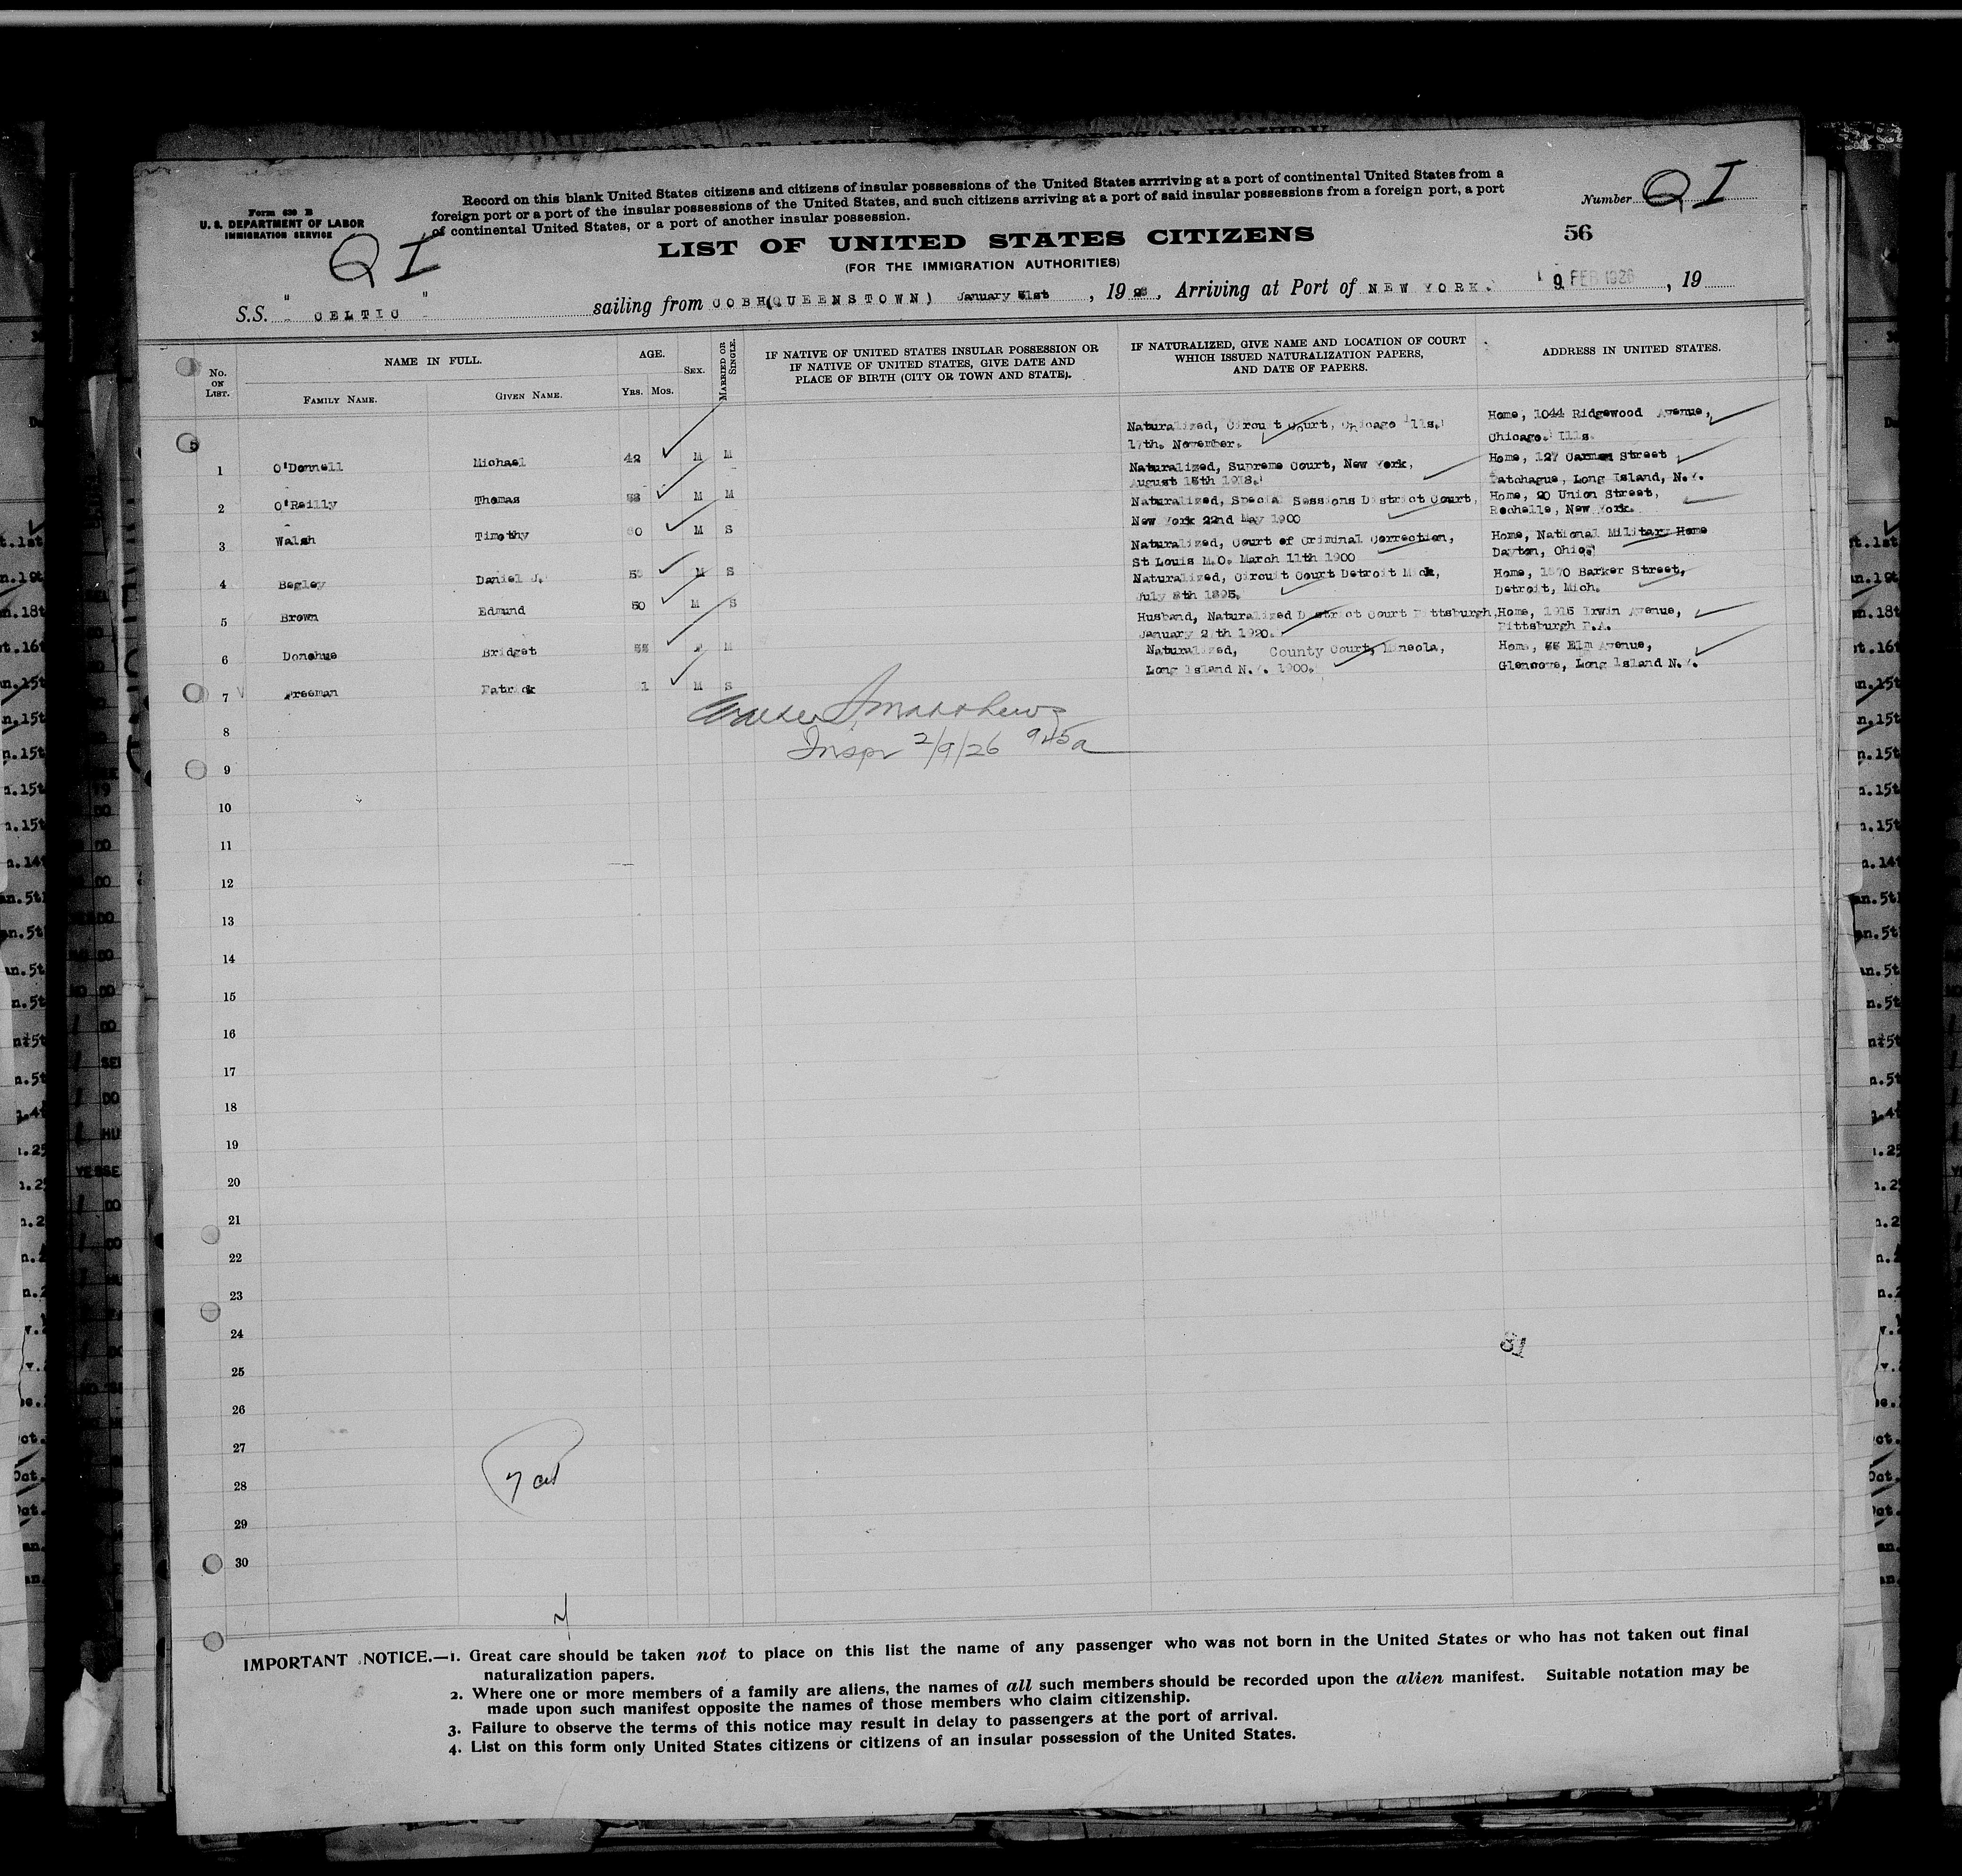 Form 630 B
U. S. DEPARTMENT OF LABOR
IMMIGRATION SERVICE
Record on this blank United States citizens and citizens of insular possessions of the United States arrriving at a port of continental United States from a
foreign port or a port of the insular possessions of the United States, and such citizens arriving at a port of said insular possessions from a foreign port, a port
of continental United States, or a port of another insular possession.
Number QI
QI
LIST OF UNITED STATES CITIZENS
56
(FOR THE IMMIGRATION AUTHORITIES)
S.S. " CELTIC " sailing from COBH(QUEENSTOWN) January 31st , 19 26, Arriving at Port of NEW YORK. 9 FEB 1926 , 19
No. ON LIST.
NAME IN FULL.
FAMILY NAME.
GIVEN NAME.
AGE.
YRS. MOS.
SEX.
MARRIED OR SINGLE.
IF NATIVE OF UNITED STATES INSULAR POSSESSION OR
IF NATIVE OF UNITED STATES, GIVE DATE AND
PLACE OF BIRTH (CITY OR TOWN AND STATE).
IF NATURALIZED, GIVE NAME AND LOCATION OF COURT
WHICH ISSUED NATURALIZATION PAPERS,
AND DATE OF PAPERS.
ADDRESS IN UNITED STATES.
5
Naturalized, Circuit Court, Chicago Ills. Home, 1044 Ridgewood Avenue,
17th. November. Chicago. Ills.
1 O'Donnell Michael 42 M M
Naturalized, Supreme Court, New York, Home, 127 Carman Street
August 15th 1918. Patchague, Long Island, N.Y.
2 O'Reilly Thomas M M
Naturalized, Special Sessions District Court, Home, 20 Union Street,
New York 22nd May 1900 Rochelle, New York.
3 Walsh Timothy 60 M S
Naturalized, Court of Criminal Correction, Home, National Military Home
St Louis M.O. March 11th 1900 Dayton, Ohio.
4 Begley Daniel J. M S
Naturalized, Circuit Court Detroit Mich, Home, 1370 Barker Street,
July 8th 1895. Detroit, Mich.
5 Brown Edmund 50 M S
Husband, Naturalized District Court Pittsburgh, Home, 1915 Irwin Avenue,
January 2 th 1920. Pittsburgh P.A.
6 Donohue Bridget F M
Naturalized, County Court, Mineola, Home, Elm Avenue,
Long Island N.Y. 1900. Glencove, Long Island N.Y.
7 Freeman Patrick M S
Walter J Matthews
Inspr 2/9/26 945a
8
9
10
11
12
13
14
15
16
17
18
19
20
21
22
23
24
81
25
26
27
28
29
30
IMPORTANT NOTICE.—1. Great care should be taken not to place on this list the name of any passenger who was not born in the United States or who has not taken out final
naturalization papers.
2. Where one or more members of a family are aliens, the names of all such members should be recorded upon the alien manifest. Suitable notation may be
made upon such manifest opposite the names of those members who claim citizenship.
3. Failure to observe the terms of this notice may result in delay to passengers at the port of arrival.
4. List on this form only United States citizens or citizens of an insular possession of the United States.